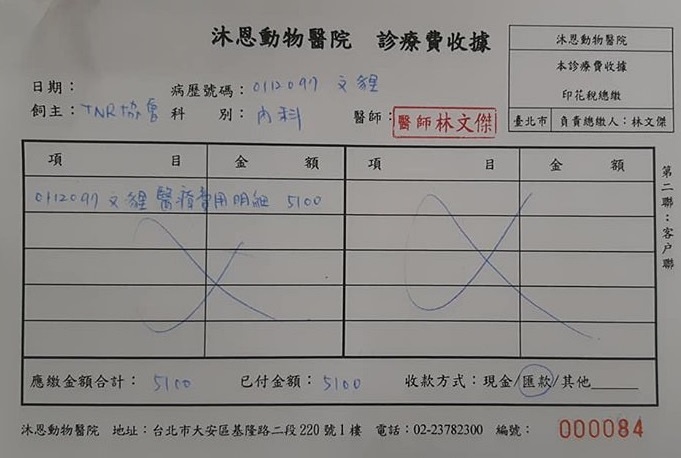 沐恩動物醫院 診療費收據
沐恩動物醫院
本診療費收據
印花稅總繳
臺北市 負責總繳人：林文傑
日期： 病歷號碼：0112097 文貍
飼主：TNR協會 科 別：內科 醫師：醫師林文傑
項 目 金 額 項 目 金 額
0112097 文貍 醫療費用明細 5100
第二聯：客戶聯
應繳金額合計：5100 已付金額：5100 收款方式：現金/匯款/其他______
沐恩動物醫院 地址：台北市大安區基隆路二段220號1樓 電話：02-23782300 編號： 000084